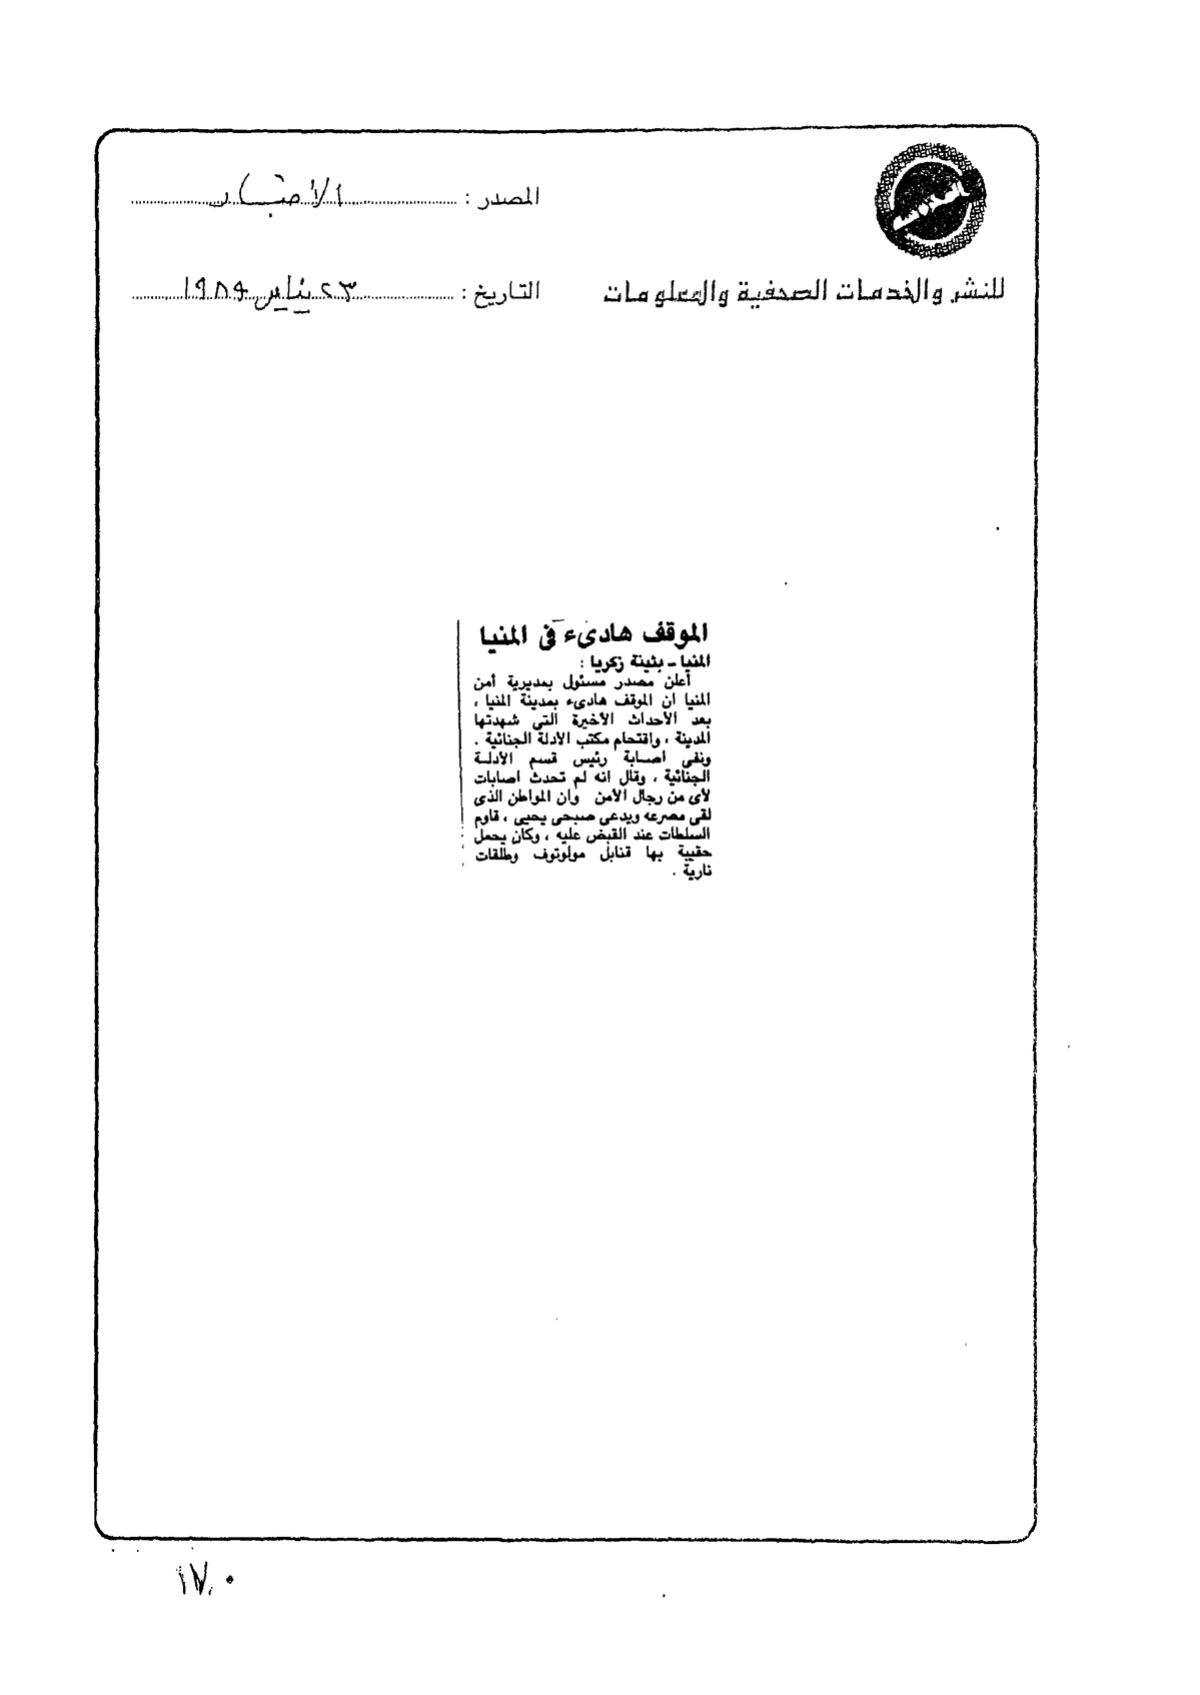 المصدر : الأخبار
للنشر والخدمات الصحفية والمعلومات
التاريخ : ٢٣ يناير ١٩٨٩
الموقف هادىء فى المنيا
المنيا - بثينة زكريا :
أعلن مصدر مسئول بمديرية أمن
المنيا ان الموقف هادىء بمدينة المنيا ،
بعد الأحداث الأخيرة التى شهدتها
المدينة ، واقتحام مكتب الأدلة الجنائية .
ونفى اصابة رئيس قسم الأدلة
الجنائية ، وقال انه لم تحدث اصابات
لأى من رجال الأمن وان المواطن الذى
لقى مصرعه ويدعى صبحى يحيى ، قاوم
السلطات عند القبض عليه ، وكان يحمل
حقيبة بها قنابل مولوتوف وطلقات
نارية .